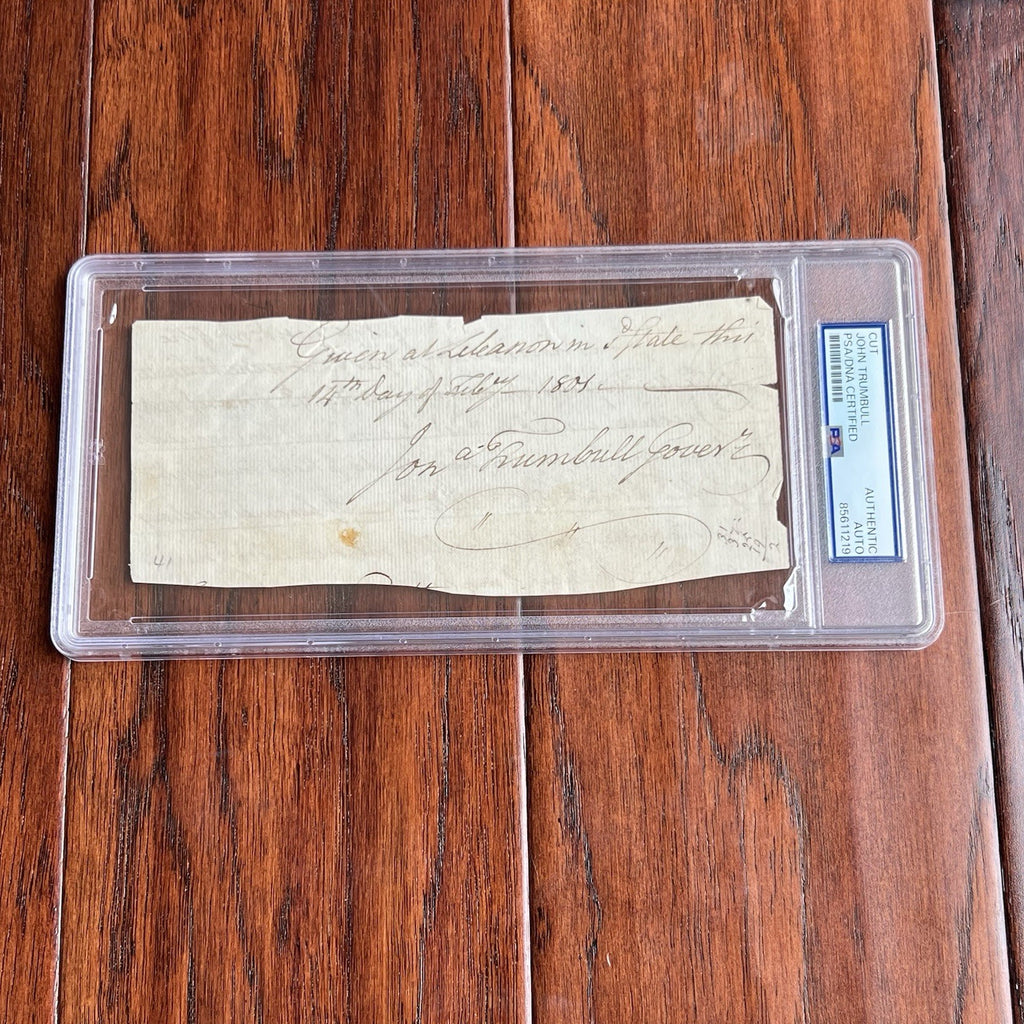 Given at Lebanon in sd State this
14th day of Feby 1801.
Jona Trumbull Goverr
41
CUT
JOHN TRUMBULL
PSA/DNA CERTIFIED
PSA
AUTHENTIC
AUTO
85611219